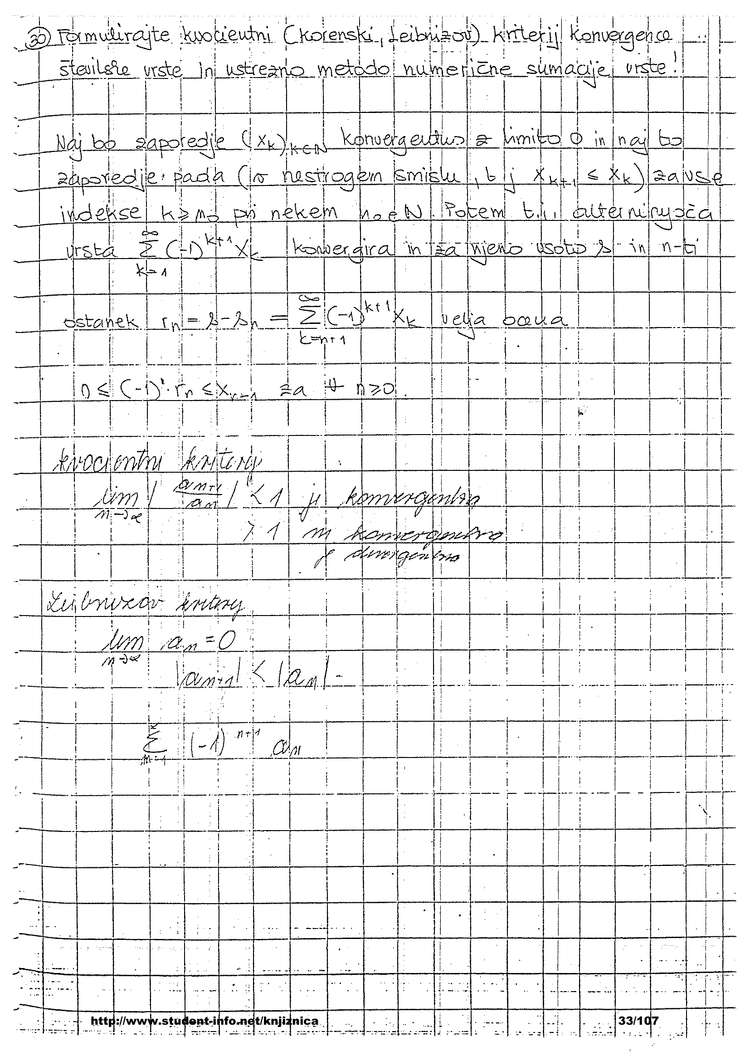 30) Formulirajte kvocientni (korenski, Leibnizov) kriterij konvergence
številske vrste in ustrezno metodo numerične sumacije vrste!
Naj bo zaporedje (x_k)_{k∈N} konvergentno z limito 0 in naj bo
zaporedje pada (v nestrogem smislu, t.j. x_{k+1} ≤ x_k) za vse
indekse k ≥ n_0 pri nekem n_0 ∈ N. Potem t.i. alternirajoča
vrsta ∑_{k=1}^{∞} (-1)^{k+1} x_k konvergira in za njeno vsoto s in n-ti
ostanek r_n = s - s_n = ∑_{k=n+1}^{∞} (-1)^{k+1} x_k velja ocena
0 ≤ (-1)^n · r_n ≤ x_{n+1} za ∀ n ≥ 0.
kvocientni kriterij
lim_{n→∞} | a_{n+1} / a_n | < 1 je konvergentna
> 1 ni konvergentna
je divergentna
Leibnizov kriterij
lim_{n→∞} a_n = 0
|a_{n+1}| < |a_n| -
∑_{n=1} (-1)^{n+1} a_n
http://www.student-info.net/knjiznica 33/107